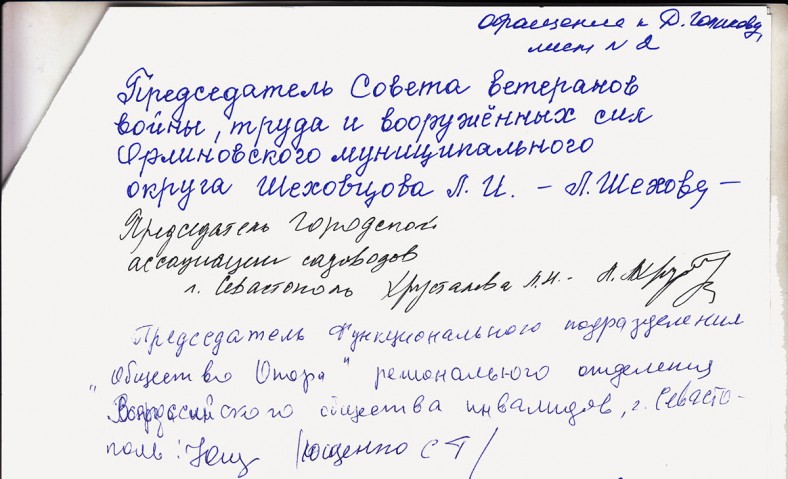 обращение к Д. Голикову,
лист N 2
Председатель Совета ветеранов
войны, труда и вооружённых сил
Орлиновского муниципального
округа Шеховцова Л. И. – Л. Шеховц –
Председатель Городской
ассоциации садоводов
г. Севастополь Хрусталева Л.Н. –
Председатель Функционального подразделения
"Общество Опора" регионального отделения
Всероссийского общества инвалидов, г. Севасто-
поль: Ющ /Ющенко С Т/